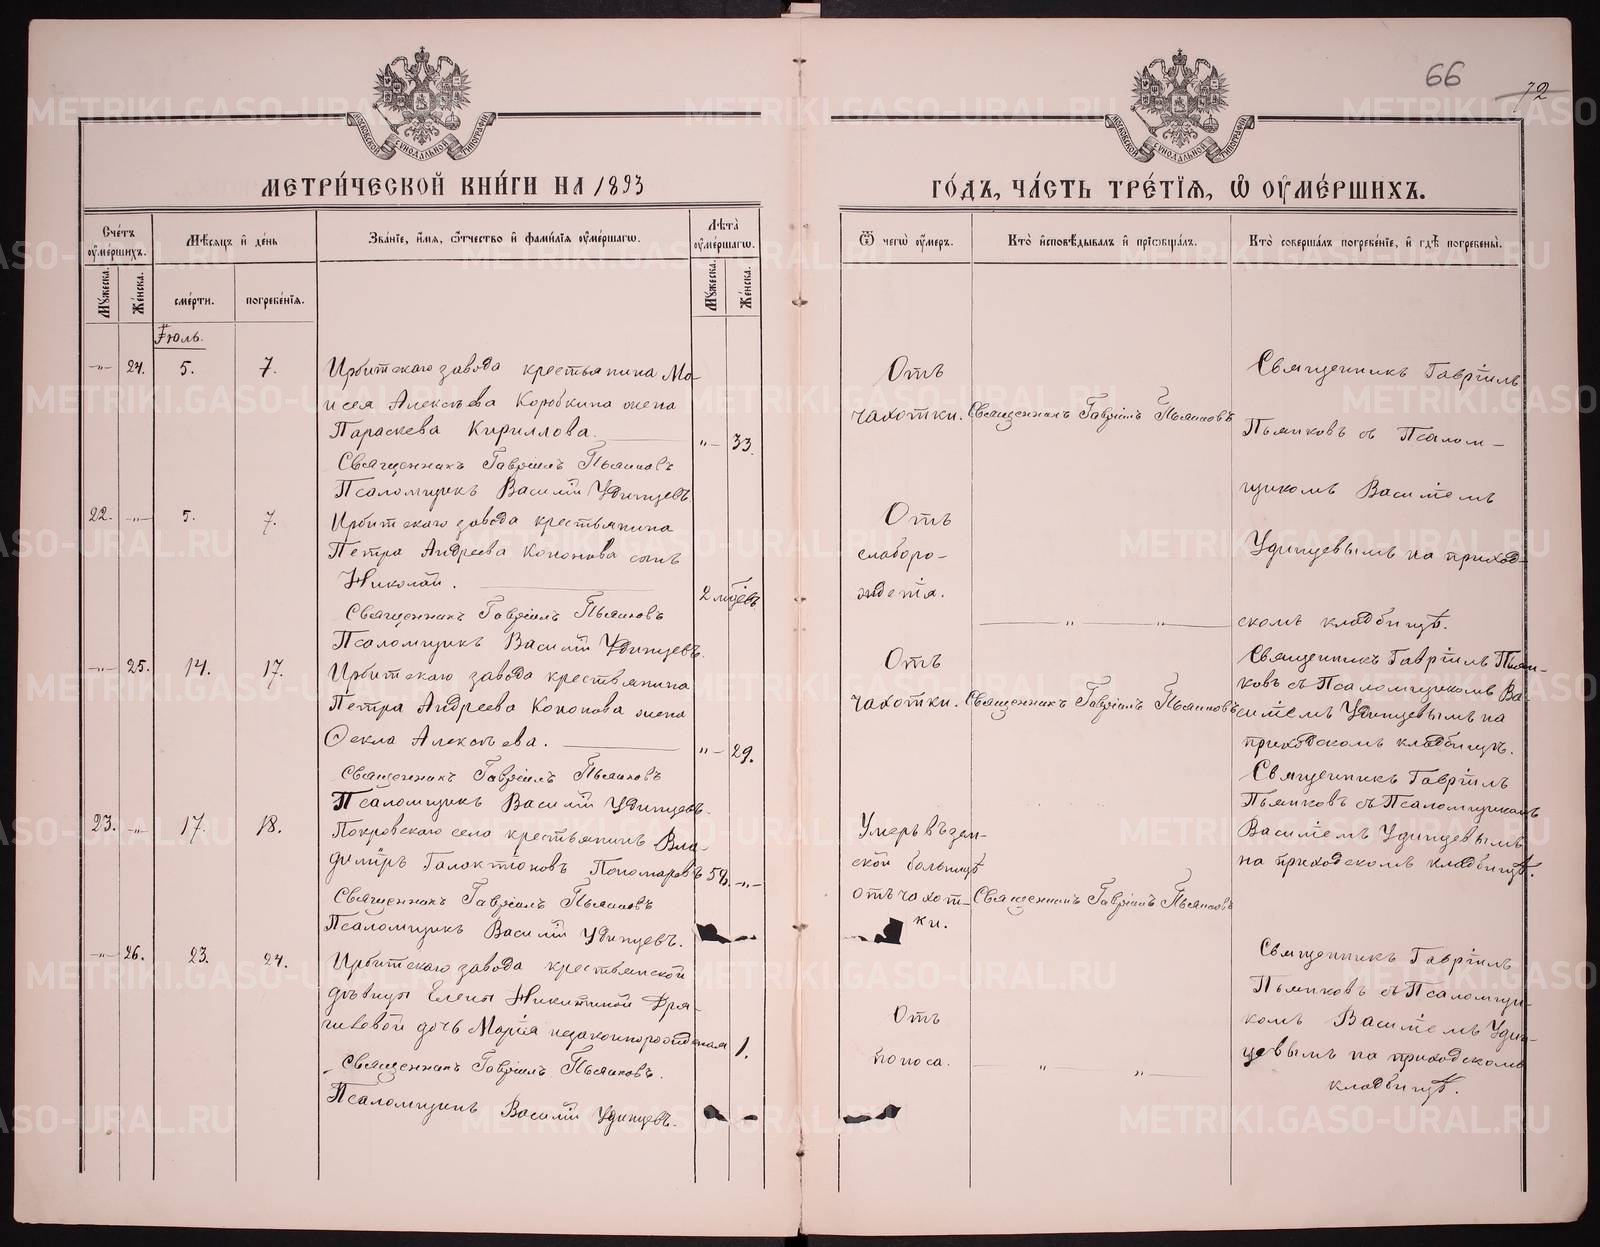 66
72
МЕТРИ́ЧЕСКОЙ КНИ́ГИ НА 1893
ГО́ДЪ, ЧА́СТЬ ТРЕ́ТЇѦ, Ѽ ОУ҆МЕ́РШИХЪ.
Сче́тъ оу҆ме́ршихъ.
Мѣ́сѧцъ и҆ де́нь
Зва́нїе, и҆́мѧ, ѻ҆́тчество и҆ фами́лїѧ оу҆ме́ршагѡ.
Лѣ́та оу҆ме́ршагѡ.
Ѿ чегѡ̀ оу҆́меръ.
Кто̀ и҆сповѣ́дывалъ и҆ прїѻбща́лъ.
Кто̀ соверша́лъ погребе́нїе, и҆ гдѣ̀ погребены̀.
Мꙋ́жеска.
Же́нска.
сме́рти.
погребе́нїѧ.
Мꙋ́жеска.
Же́нска.
Іюль.
-"- 24. 5. 7.
Ирбитскаго завода крестьянина Мо-
исея Алексѣева Коробкина жена
Параскева Кириллова.
"- 33.
Священникъ Гавріилъ Пьянковъ
Псаломщикъ Василій Удинцевъ
Отъ
чахотки.
Священникъ Гавріилъ Пьянковъ
Священникъ Гавріилъ
Пьянковъ съ Псалом-
щикомъ Василіемъ
Удинцевымъ на приход-
скомъ кладбищѣ.
22. -"- 5. 7.
Ирбитскаго завода крестьянина
Петра Андреева Кононова сынъ
Николай.
Священникъ Гавріилъ Пьянковъ
Псаломщикъ Василій Удинцевъ.
Отъ
слаборо-
жденія.
" "
-"- 25. 14. 17.
Ирбитскаго завода крестьянина
Петра Андреева Кононова жена
Ѳекла Алексѣева.
"- 29.
Священникъ Гавріилъ Пьянковъ
Псаломщикъ Василій Удинцевъ.
Отъ
чахотки.
Священникъ Гавріилъ Пьянковъ
Священникъ Гавріилъ Пьян-
ковъ съ Псаломщикомъ Ва-
силіемъ Удинцевымъ на
приходскомъ кладбищѣ.
23. -"- 17. 18.
Покровскаго села крестьянинъ Вла-
диміръ Галактіоновъ Пономаревъ
58. -"-
Священникъ Гавріилъ Пьянковъ
Псаломщикъ Василій Удинцевъ.
Умеръ въ зем-
ской больницѣ
отъ чахот-
ки.
Священникъ Гавріилъ Пьянковъ
Священникъ Гавріилъ
Пьянковъ съ Псаломщикомъ
Василіемъ Удинцевымъ
на приходскомъ кладбищѣ.
-"- 26. 23. 24.
Ирбитскаго завода крестьянской
дѣвицы Елены Никитиной
дочь Марія незаконнорожденная
1.
Священникъ Гавріилъ Пьянковъ.
Псаломщикъ Василій Удинцевъ.
Отъ
поноса.
" "
Священникъ Гавріилъ
Пьянковъ съ Псаломщи-
комъ Василіемъ Удин-
цевымъ на приходскомъ
кладбищѣ.
METRIKI.GASO-URAL.RU